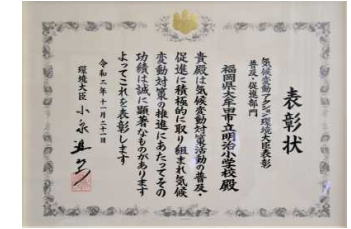 表彰状
気候変動アクション環境大臣表彰
普及・促進部門
福岡県大牟田市立明治小学校 殿
貴殿は気候変動対策活動の普及・
促進に積極的に取り組まれ気候
変動対策の推進にあたってその
功績は誠に顕著なものがあります
よってこれを表彰します
令和二年十一月二十一日
環境大臣 小泉進